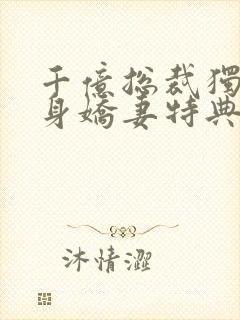 千億總裁獨
身嬌妻特典
沐情澀